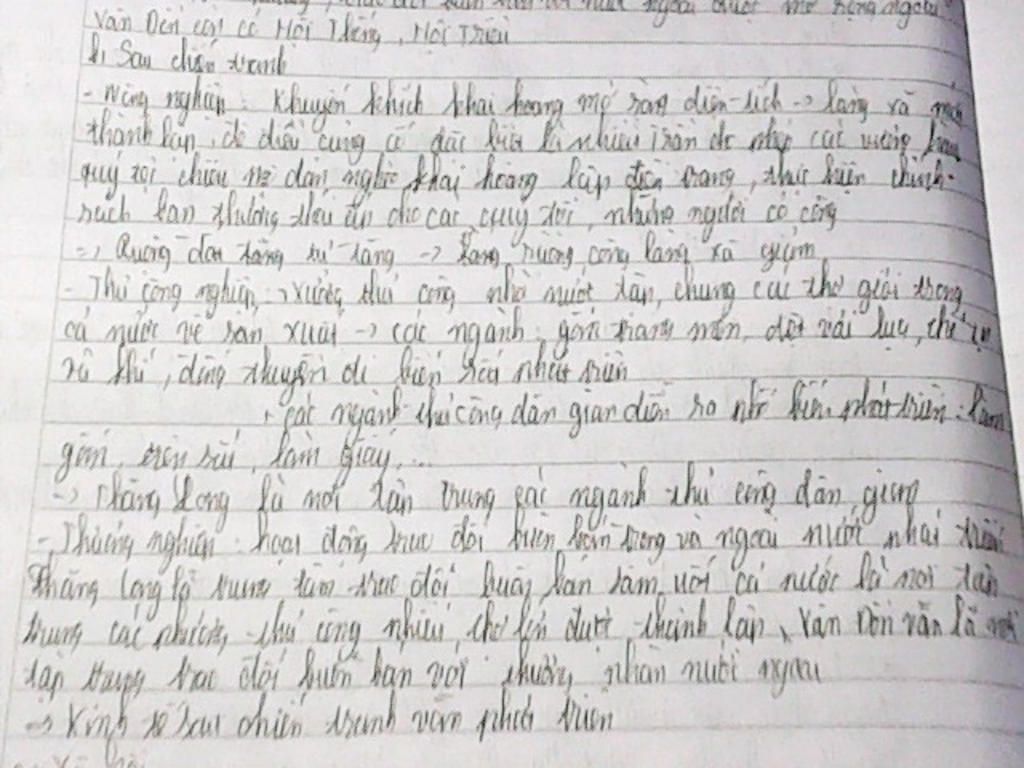 Vân Đồn còn có Hội Thống, Hội Triều
b, Sau chiến tranh
- Nông nghiệp: Khuyến khích khai hoang mở rộng diện tích -> làng xã mới
thành lập, đê điều củng cố đặc biệt là nhà Trần cho phép các vương hầu
quý tộc chiêu mộ dân nghèo khai hoang lập điền trang, thực hiện chính
sách ban thưởng thái ấp cho các quý tộc, những người có công
=> Ruộng đất tăng -> ruộng công làng xã giảm
- Thủ công nghiệp: + xưởng thủ công nhà nước tập chung các thợ giỏi trong
cả nước về sản xuất -> các ngành: gốm tráng men, dệt vải lụa, chế tạo
vũ khí, đóng thuyền đi biển rất phát triển
+ các ngành thủ công dân gian diễn ra phổ biến, phát triển: làm
gốm, rèn sắt, làm giấy,...
-> Thăng Long là nơi tập trung các ngành thủ công dân gian
- Thương nghiệp: hoạt động trao đổi buôn bán trong và ngoài nước phát triển
Thăng Long là trung tâm trao đổi buôn bán sầm uất cả nước là nơi tập
trung các phường thủ công nhiều, chợ lớn được thành lập, Vân Đồn vẫn là nơi
tập trung trao đổi buôn bán với thương nhân nước ngoài
-> Kinh tế sau chiến tranh vẫn phát triển